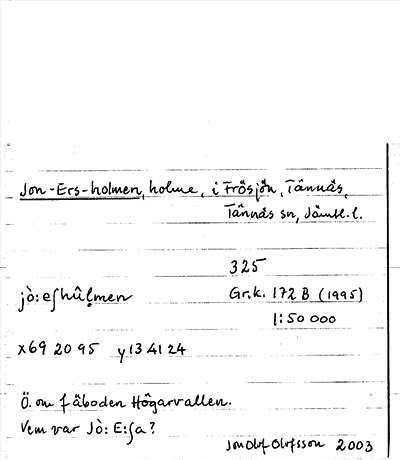 Jon-Ers-holmen, holme, i Frösjön, Tännäs,
Tännäs sn, Jämtl. l.
325
jò:eʃhûḷmen Gr.k. 172 B (1995)
1:50 000
x69 20 95 y13 41 24
Ö. om fäboden Högarvallen.
Vem var Jò: E:ʃa?
Jon Olof Olofsson 2003